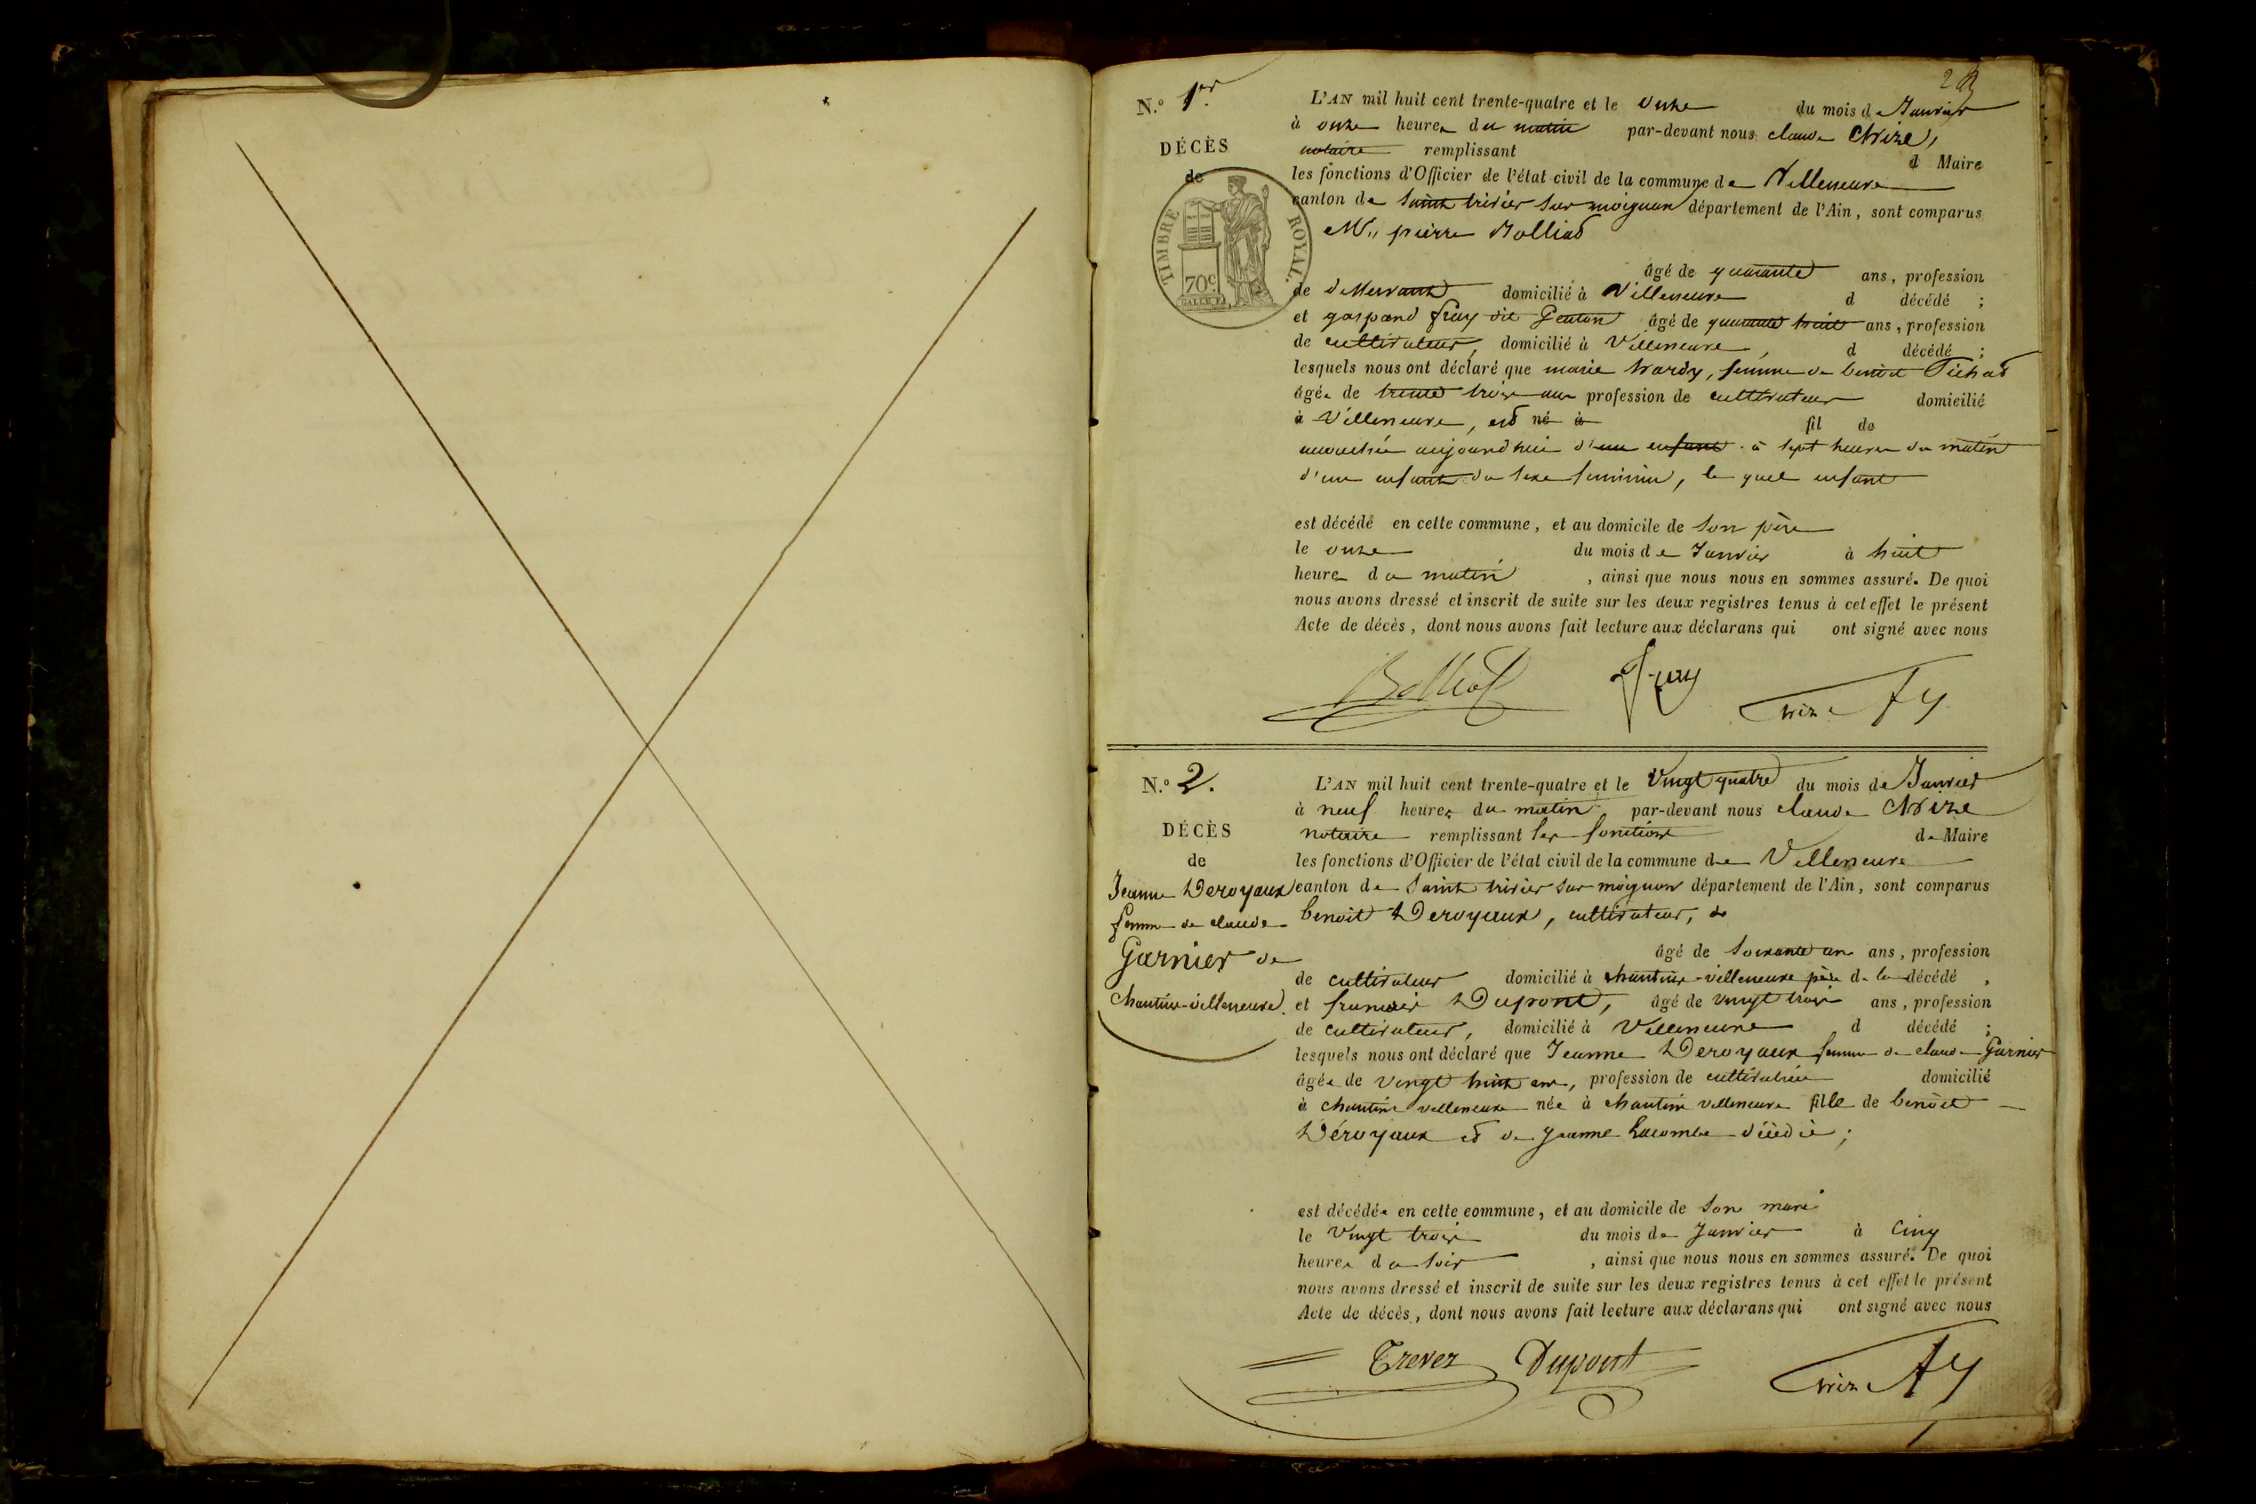 N.º 1er
DÉCÈS
de
TIMBRE ROYAL.
70 c
L'AN mil huit cent trente-quatre et le onze du mois de Janvier
à onze heures du matin par-devant nous claude
notaire remplissant d Maire
les fonctions d'Officier de l'état civil de la commune de Villeneuve
canton de Saint trivier sur moignan département de l'Ain, sont comparus
Mr pierre Bolliat
âgé de quarante ans, profession
de desservant domicilié à Villeneuve d décédé ;
et gaspard fray dit Genton âgé de quarante huit ans, profession
de cultivateur, domicilié à Villeneuve, d décédé ;
lesquels nous ont déclaré que marie hardy, femme de benoit
âgée de trente trois ans profession de cultivateur domicilié
à Villeneuve, est né à fil de
accouchée aujourd'hui d'un enfant à sept heures du matin
d'un enfant du sexe feminin, le quel enfant
est décédé en cette commune, et au domicile de son père
le onze du mois de Janvier à huit
heures du matin, ainsi que nous nous en sommes assuré. De quoi
nous avons dressé et inscrit de suite sur les deux registres tenus à cet effet le présent
Acte de décès, dont nous avons fait lecture aux déclarans qui ont signé avec nous
Bolliat fray
N.º 2.
DÉCÈS
de
Jeanne Deroyaux
femme de claude
Garnier de
chantin-villeneuve.
L'AN mil huit cent trente-quatre et le Vingt quatre du mois de Janvier
à neuf heures du matin par-devant nous claude
notaire remplissant les fonctions de Maire
les fonctions d'Officier de l'état civil de la commune de Villeneuve
canton de Saint trivier sur moignan département de l'Ain, sont comparus
benoit Deroyaux, cultivateur, de
âgé de soixante un ans, profession
de cultivateur domicilié à chantin-villeneuve père de la décédé,
et francois Dupont, âgé de vingt trois ans, profession
de cultivateur, domicilié à Villeneuve d décédé ;
lesquels nous ont déclaré que Jeanne Deroyaux femme de claude Garnier
âgée de vingt huit ans, profession de cultivatrice domicilié
à chantin villeneuve née à chantin villeneuve fille de benoit
Déroyaux et de jeanne Lacombe décédée ;
est décédée en cette commune, et au domicile de son mari
le Vingt trois du mois de Janvier à Cinq
heures du soir, ainsi que nous nous en sommes assuré. De quoi
nous avons dressé et inscrit de suite sur les deux registres tenus à cet effet le présent
Acte de décès, dont nous avons fait lecture aux déclarans qui ont signé avec nous
Dupont